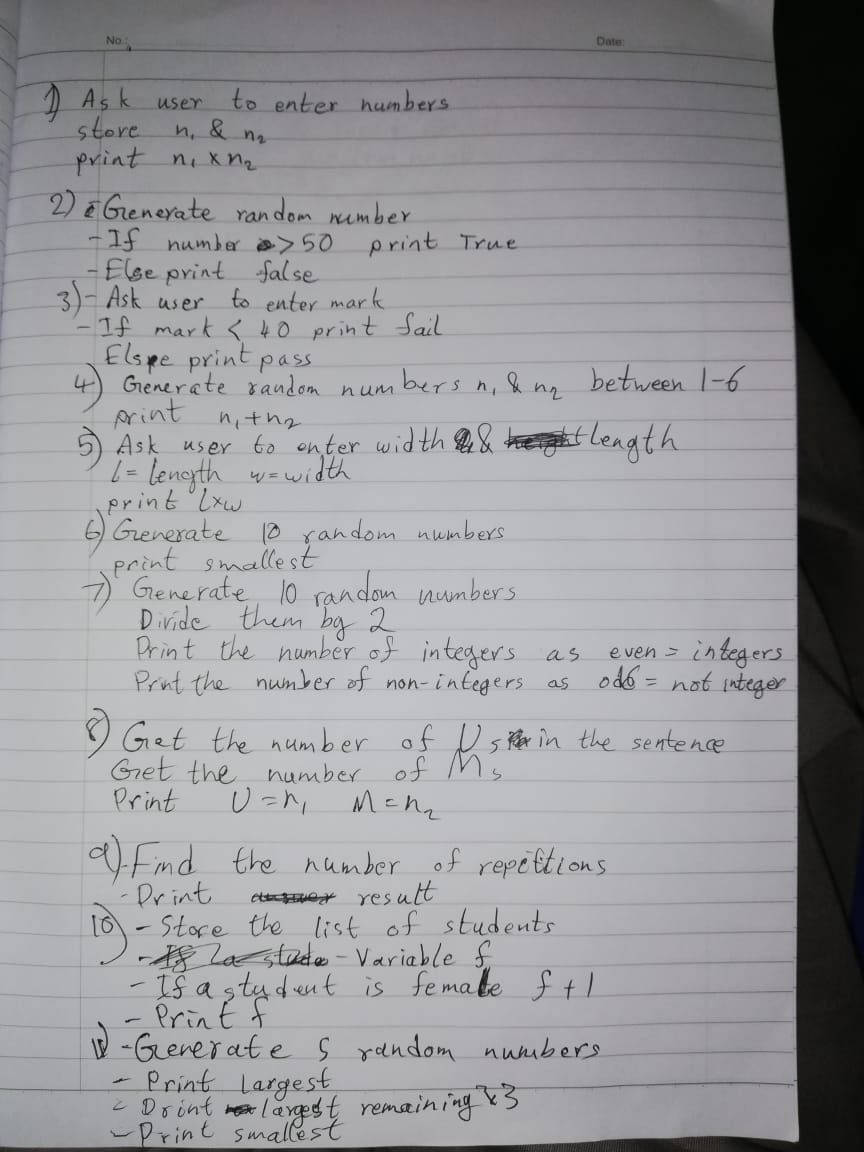 No.:
Date:
1) Ask user to enter numbers
store n₁ & n₂
print n₁ x n₂
2) Generate random number
- If number > 50 print True
- Else print false
3) - Ask user to enter mark
- If mark < 40 print fail
Else print pass
4) Generate random numbers n₁ & n₂ between 1-6
print n₁+n₂
5) Ask user to enter width & length
l = length w = width
print lxw
6) Generate 10 random numbers
print smallest
7) Generate 10 random numbers
Divide them by 2
Print the number of integers as even = integers
Print the number of non-integers as odd = not integer
8) Get the number of Us in the sentence
Get the number of Ms
Print U = n₁ M = n₂
9) - Find the number of repetitions
- Print result
10) - Store the list of students
- Variable f
- If a student is female f + 1
- Print f
11) - Generate 5 random numbers
- Print Largest
- Print largest remaining x3
- Print smallest